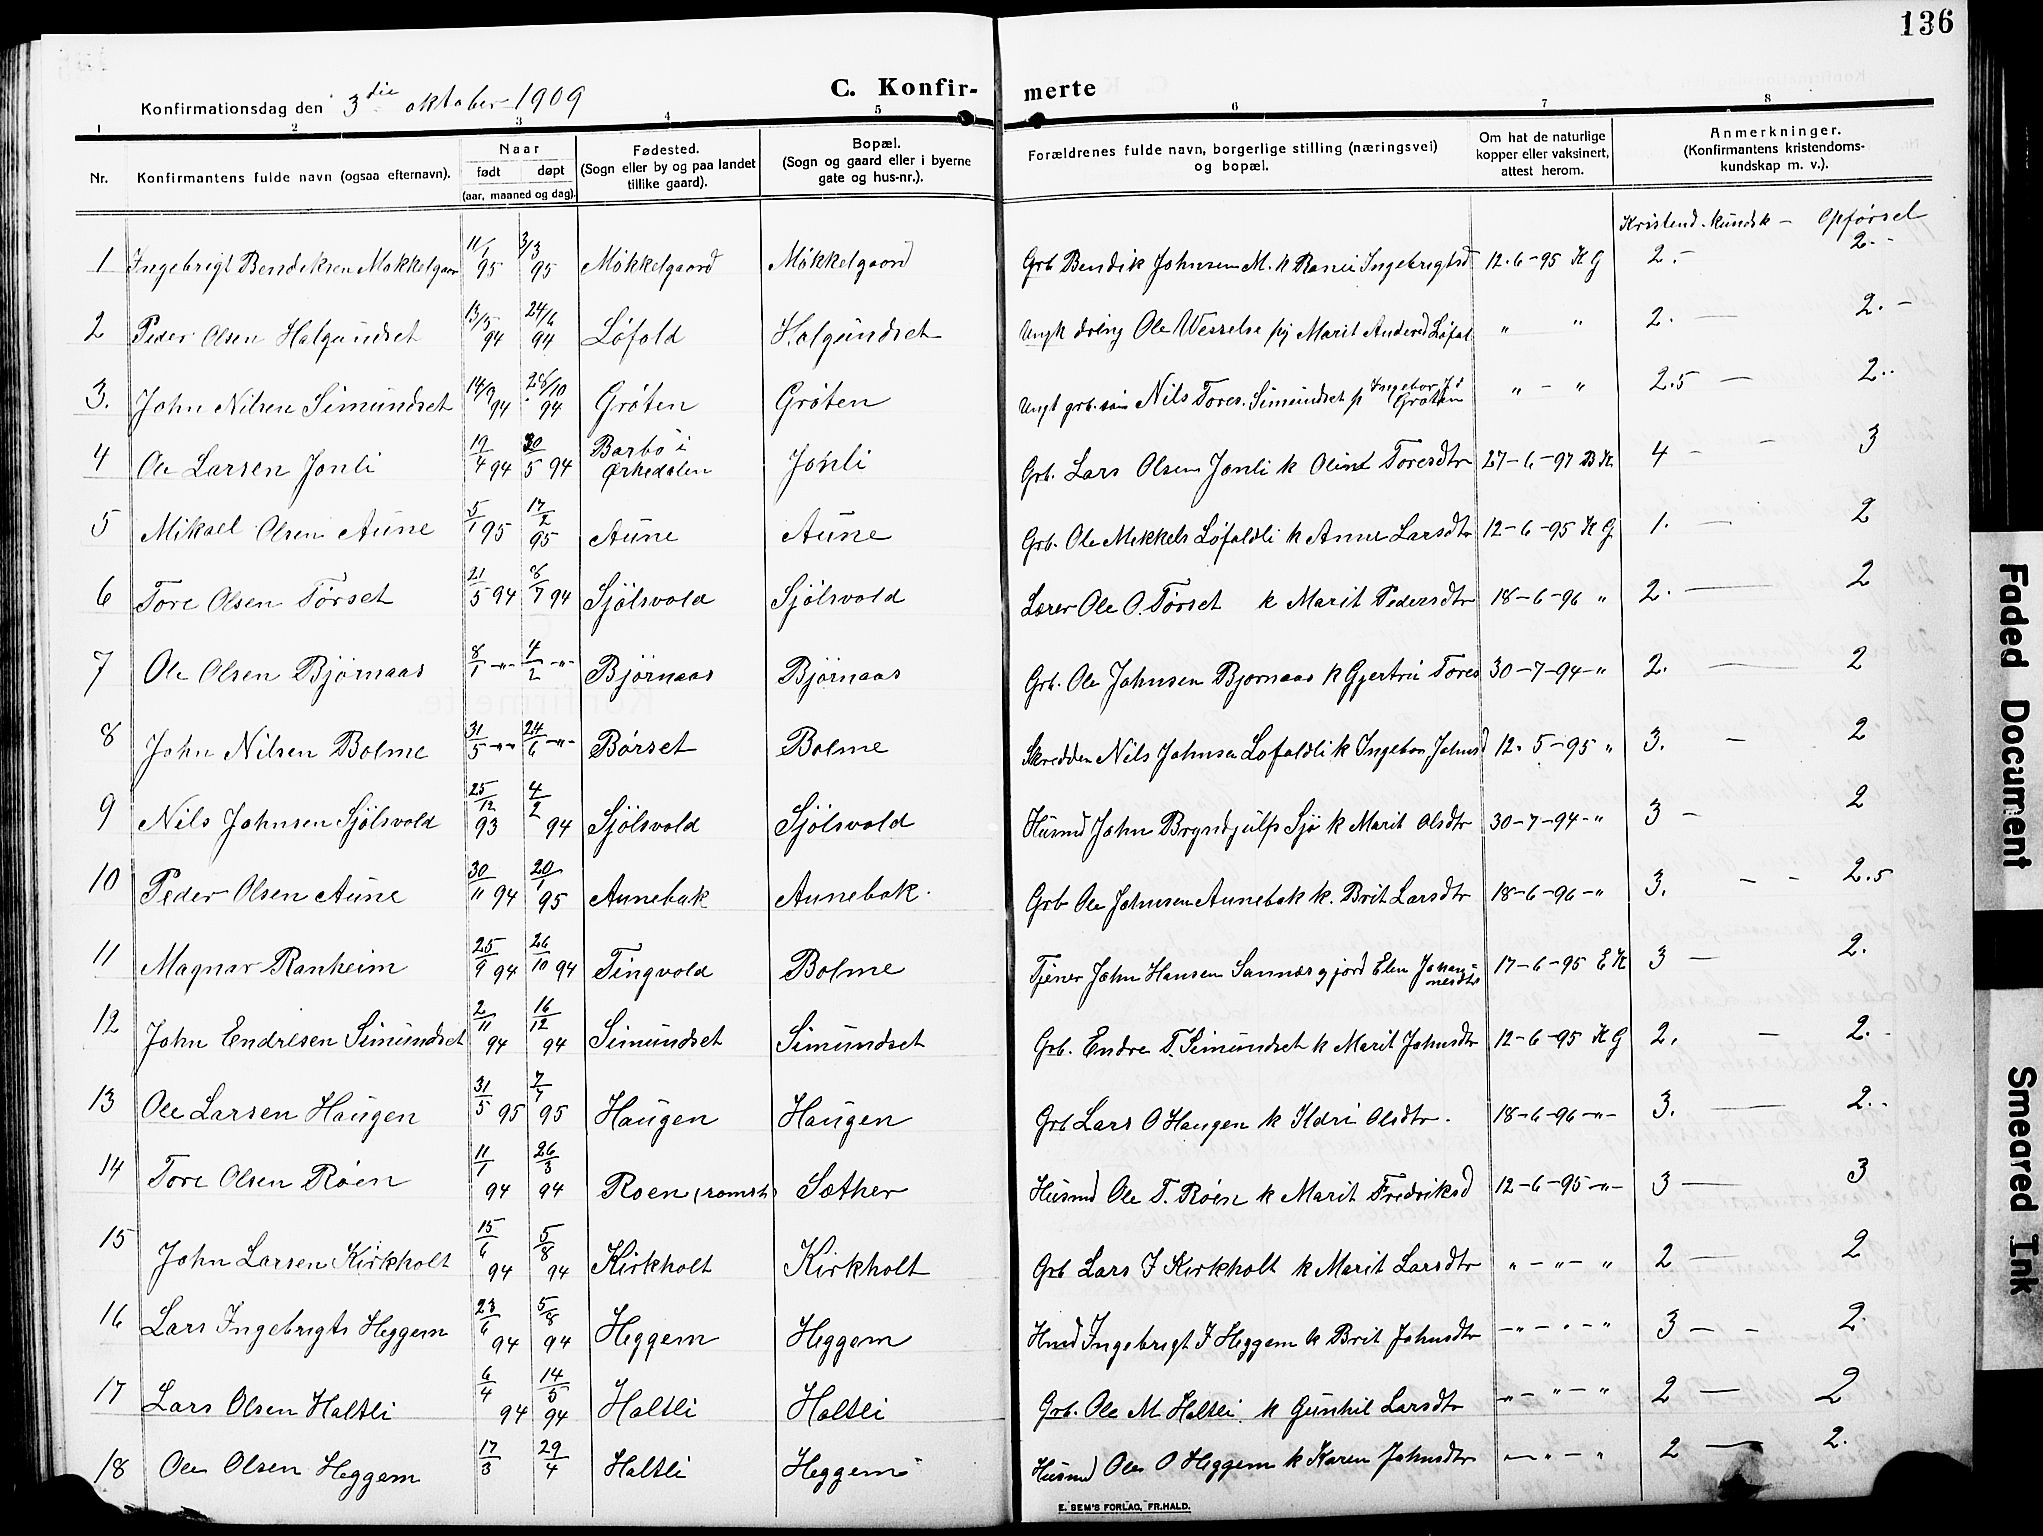 136
Konfirmationsdag den 3die oktober 1909
C. Konfir-merte
1 2 3 4 5 6 7 8
Nr. Konfirmantens fulde navn (ogsaa efternavn). Naar født døpt (aar, maaned og dag). Fødested. (Sogn eller by og paa landet tillike gaard). Bopæl. (Sogn og gaard eller i byerne gate og hus-nr.). Forældrenes fulde navn, borgerlige stilling (næringsvei) og bopæl. Om hat de naturlige kopper eller vaksinert, attest herom. Anmerkninger. (Konfirmantens kristendoms-kundskap m. v.).
Kristend. kundsk - Opførsel
1 Ingebrigt Bendiksen Møkkelgaar 11/1 95 3/3 95 Møkkelgaard Møkkelgaard Grb Bendik Johnsen M. k Ranei Ingebrigtsd 12-6-95 K G 2.- 2.-
2 Peder Olsen Halgundset 13/5 94 24/6 94 Løfald Halgundset Ungk dreng Ole Wessels pig Marit Andersd Løfal " " 2. - 2. -
3. John Nilsen Simundset 14/9 94 28/10 94 Grøten Grøten Ungk grb. søn Nils Tores. Simundset p Ingebor Grøten " - " 2.5 - 2..
4 Ole Larsen Jønli 19/4 94 20/5 94 Barbo i Ørkedalen Jønli Grb. Lars Olsen Jønli k Oline Toresdtr 27-6-97 B K 4 - 3
5 Mikael Olsen Aune 5/1 95 17/2 95 Aune Aune Grb. Ole Mekkels Løfaldli k Anne Larsdtr 12-6-95 K G 1. - 2
6 Tore Olsen Tørset 21/5 94 8/7 94 Sjølsvold Sjølsvold Lærer Ole O. Tørset k Marit Pedersdtr 18-6-96 " 2. - 2
7 Ole Olsen Bjørnaas 8/1 -"- 4/2 -"- Bjørnaas Bjørnaas Grb. Ole Johnsen Bjørnaas k Gjertru Tores 30-7-94-" 2. - 2
8 John Nilsen Bolme 31/5 -"- 24/6 -"- Børset Bolme Skredder Nils Johnsen Løfaldli k Ingebor Johnsd 12-5-95 " 3. - 2
9 Nils Johnsen Sjølsvold 25/12 93 4/2 94 Sjølsvold Sjølsvold Husmd John Brynhjulfs Sjø k Marit Olsdtr 30-7-94-" 3 - 2
10 Peder Olsen Aune 30/11 94 20/1 95 Aunebak Aunebak. Grb Ole Johnsen Aunebak k. Brit Larsdtr 18-6-96-" 3. - - 2.5
11 Magnar Ranheim 25/9 94 26/10 94 Tingvold Bolme Tjener John Hansen Sannæs gjord Elen Johannesdtr 17-6-95 E K 3 - 2.
12 John Endresen Simundset 2/11 94 16/12 94 Simundset Simundset Grb. Endre T. Simundset k Marit Johnsdtr 12-6-95 K G 2. - 2.
13 Ole Larsen Haugen 31/5 95 7/7 95 Haugen Haugen Grb Lars O Haugen k Ildri Olsdtr. 18-6-96-"- 3. - 2..
14 Tore Olsen Røen 11/1 94 26/3 94 Roen (romsh) Sæther Husmd Ole T. Røen k Marit Fredriksd 12-6-95-"- 3 - 3
15 John Larsen Kirkholt 15/6 94 5/8 94 Kirkholt Kirkholt Grb Lars I Kirkholt k Marit Larsdtr " - " - " 2 - 2
16 Lars Ingebrigts Heggem 23/6 94 5/8 94 Heggem Heggem Hmd Ingebrigt I Heggem k Brit Johnsdtr -"-"-" 3 - - 2.
17 Lars Olsen Haltli 6/4 94 14/5 94 Haltli Haltli Grb. Ole M Haltli k Gunhil Larsdtr "-"-" 2 - 2
18 Ole Olsen Heggem 17/3 29/4 Haltli Heggem Husmd Ole O Heggem k Karen Johnsdtr -"-" 2 - 2.
E. SEM'S FORLAG, FR.HALD.
Faded Document
Smeared Ink